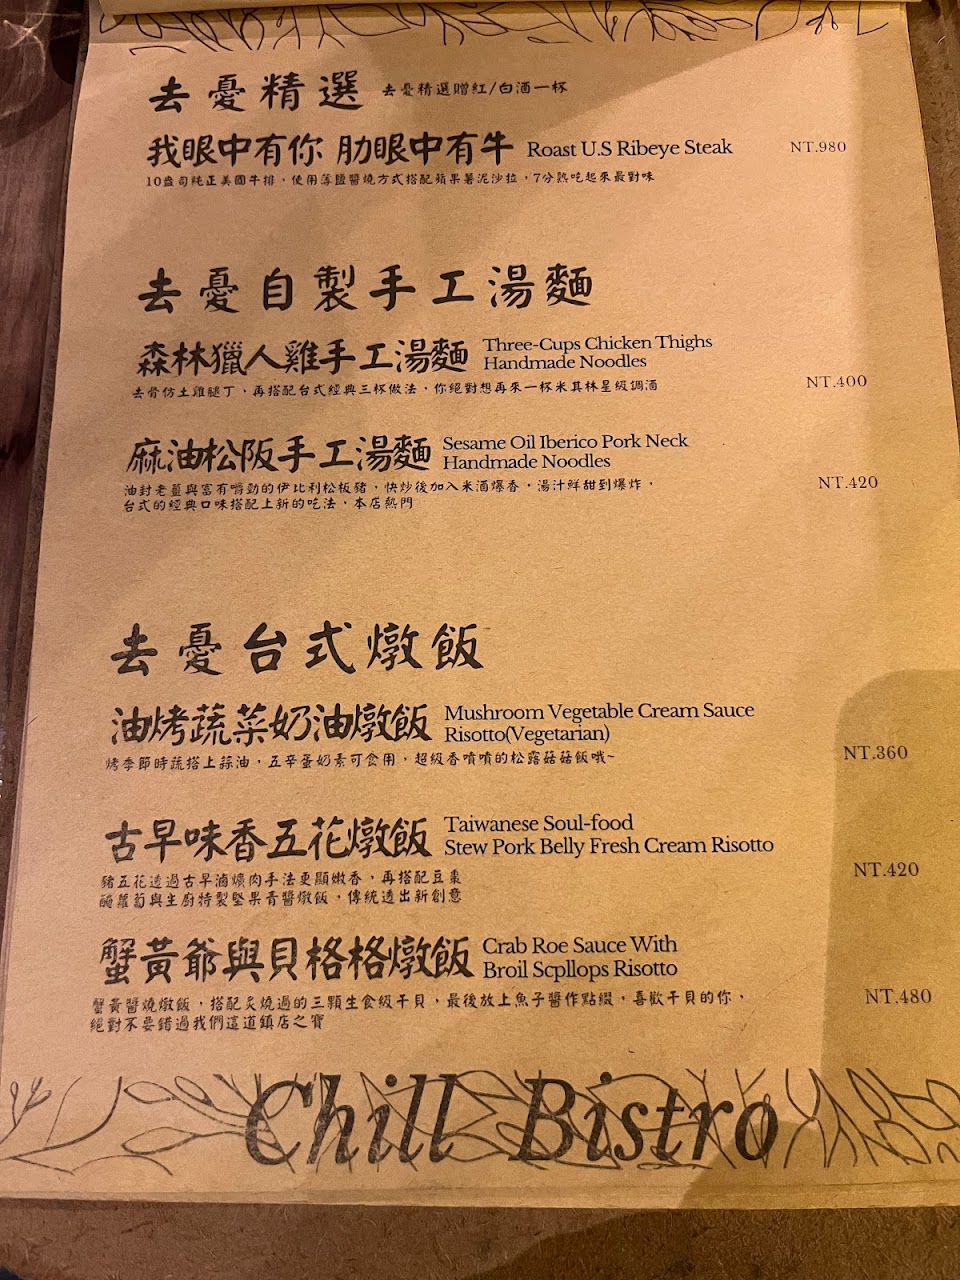 去憂精選 去憂精選贈紅/白酒一杯
我眼中有你 肋眼中有牛 Roast U.S Ribeye Steak NT.980
10盎司純正美國牛排，使用薄鹽醬燒方式搭配蘋果薯泥沙拉，7分熟吃起來最對味
去憂自製手工湯麵
森林獵人雞手工湯麵 Three-Cups Chicken Thighs
Handmade Noodles
去骨仿土雞腿丁，再搭配台式經典三杯做法，你絕對想再來一杯米其林星級調酒 NT.400
麻油松阪手工湯麵 Sesame Oil Iberico Pork Neck
Handmade Noodles
油封老薑與富有嚼勁的伊比利松板豬，快炒後加入米酒爆香，湯汁鮮甜到爆炸， NT.420
台式的經典口味搭配上新的吃法，本店熱門
去憂台式燉飯
油烤蔬菜奶油燉飯 Mushroom Vegetable Cream Sauce
Risotto(Vegetarian)
烤季節時蔬搭上蒜油，五辛蛋奶素可食用，超級香噴噴的松露菇菇飯哦~ NT.360
古早味香五花燉飯 Taiwanese Soul-food
Stew Pork Belly Fresh Cream Risotto
豬五花透過古早滷爌肉手法更顯嫩香，再搭配豆棗 NT.420
醃蘿蔔與主廚特製堅果青醬燉飯，傳統透出新創意
蟹黃爺與貝格格燉飯 Crab Roe Sauce With
Broil Scpllops Risotto
蟹黃醬燒燉飯，搭配炙燒過的三顆生食級干貝，最後放上魚子醬作點綴，喜歡干貝的你， NT.480
絕對不要錯過我們這道鎮店之寶
Chill Bistro